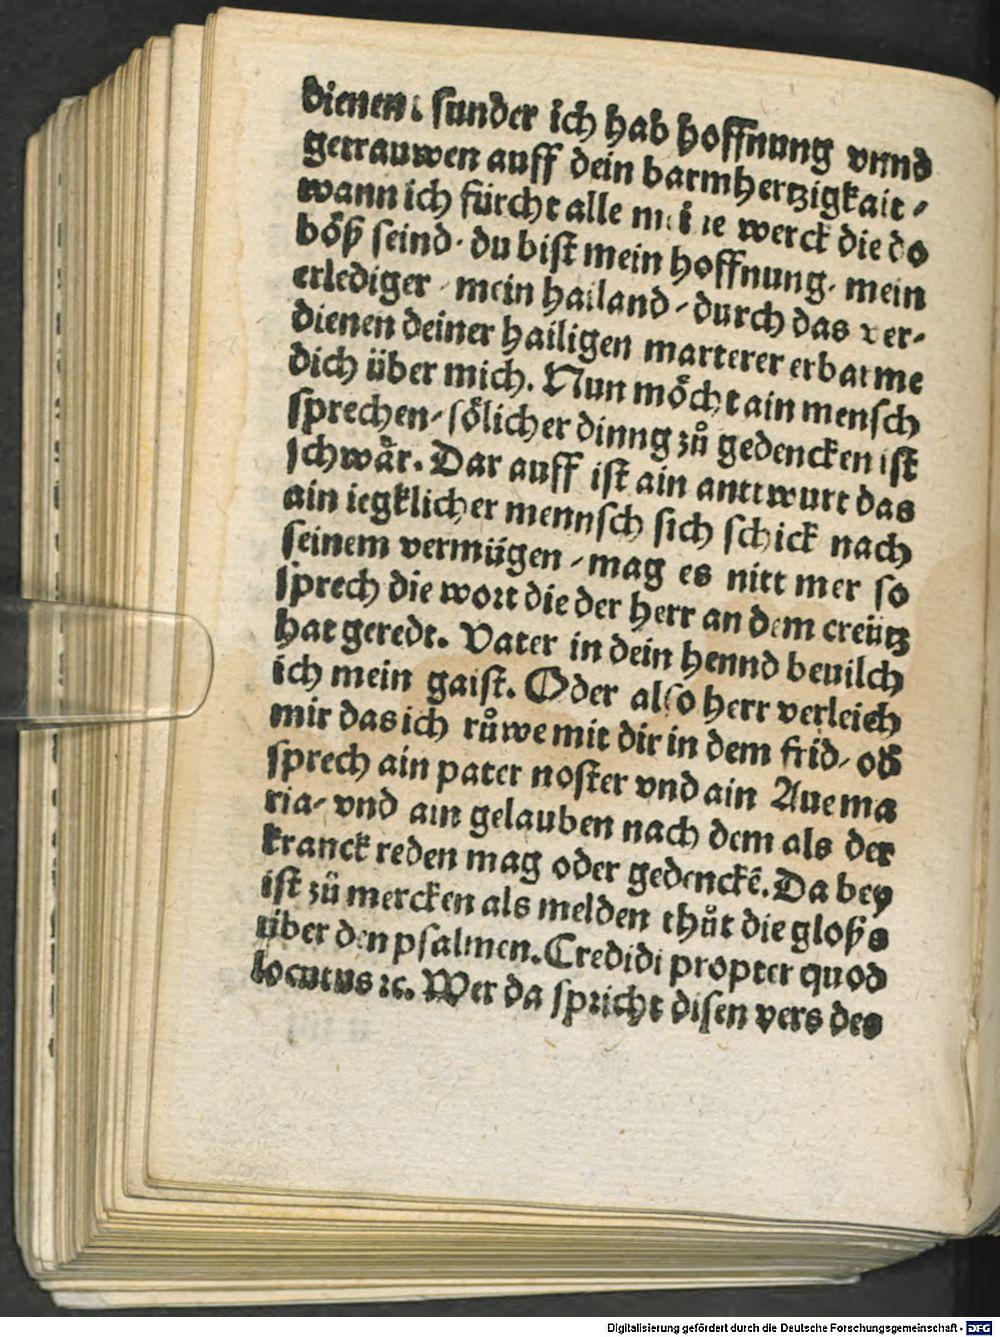 dienen: sunder ich hab hoffnung vnnd
getrauwen auff dein barmhertzigkait /
wann ich fürcht alle meine werck die do
böß seind · du bist mein hoffnung · mein
erlediger / mein hailand / durch das ver-
dienen deiner hailigen marterer erbarme
dich über mich. Nun möcht ain mensch
sprechen / sölicher dinng zů gedencken ist
schwår. Dar auff ist ain anttwurt das
ain iegklicher mennsch sich schick nach
seinem vermügen / mag es nitt mer so
sprech die wort die der herr an dem creütz
hat geredt. Vater in dein hennd beuilch
ich mein gaist. Oder also herr verleich
mir das ich růwe mit dir in dem frid / od
sprech ain pater noster vnd ain Aue ma
ria / vnd ain gelauben nach dem als der
kranck reden mag oder gedenckē. Da bey
ist zů mercken als melden thůt die gloß s
über den psalmen. Credidi propter quod
locutus ⁊c. Wer da spricht disen vers des
Digitalisierung gefördert durch die Deutsche Forschungsgemeinschaft - DFG